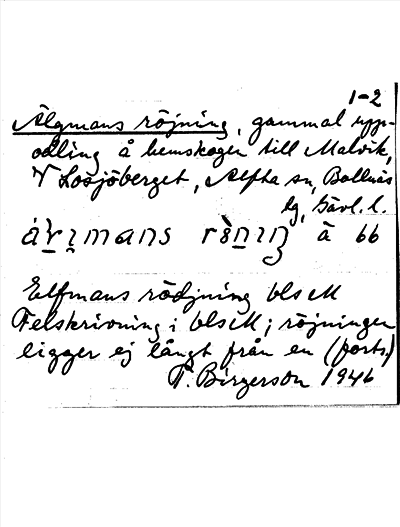 1-2
Älgmans röjning, gammal upp-
odling å hemskogen till Malvik,
V Losjöberget, Alfta sn, Bollnäs
tg, Gävl. l.
rö̀niŋ à bb
Elfmans rödjning bls M
Felskrivning i bls M; röjningen
ligger ej långt från en (forts.)
T. Birgerson 1946